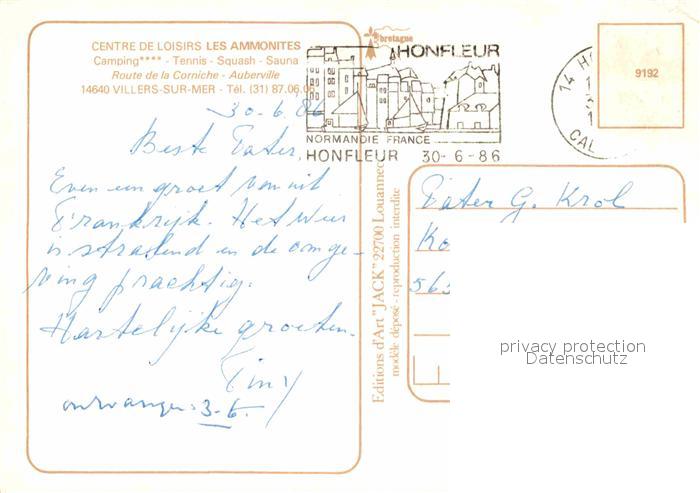 CENTRE DE LOISIRS LES AMMONITES
Camping**** - Tennis - Squash - Sauna
Route de la Corniche - Auberville
14640 VILLERS-SUR-MER - Tél. (31) 87.06.06
30-6-86
Beste Pater,
Even een groet vanuit
Frankrijk. Het weer
is stralend en de omge-
ving prachtig.
Hartelijke groeten.
Tiny
ontvangen: 3-
bretagne
HONFLEUR
NORMANDIE FRANCE
HONFLEUR 30-6-86
14 H
CAL
9192
Editions d'Art "JACK" 22700 Louannec
modèle déposé - reproduction interdite
Pater G. Krol
Ko
563
privacy protection
Datenschutz